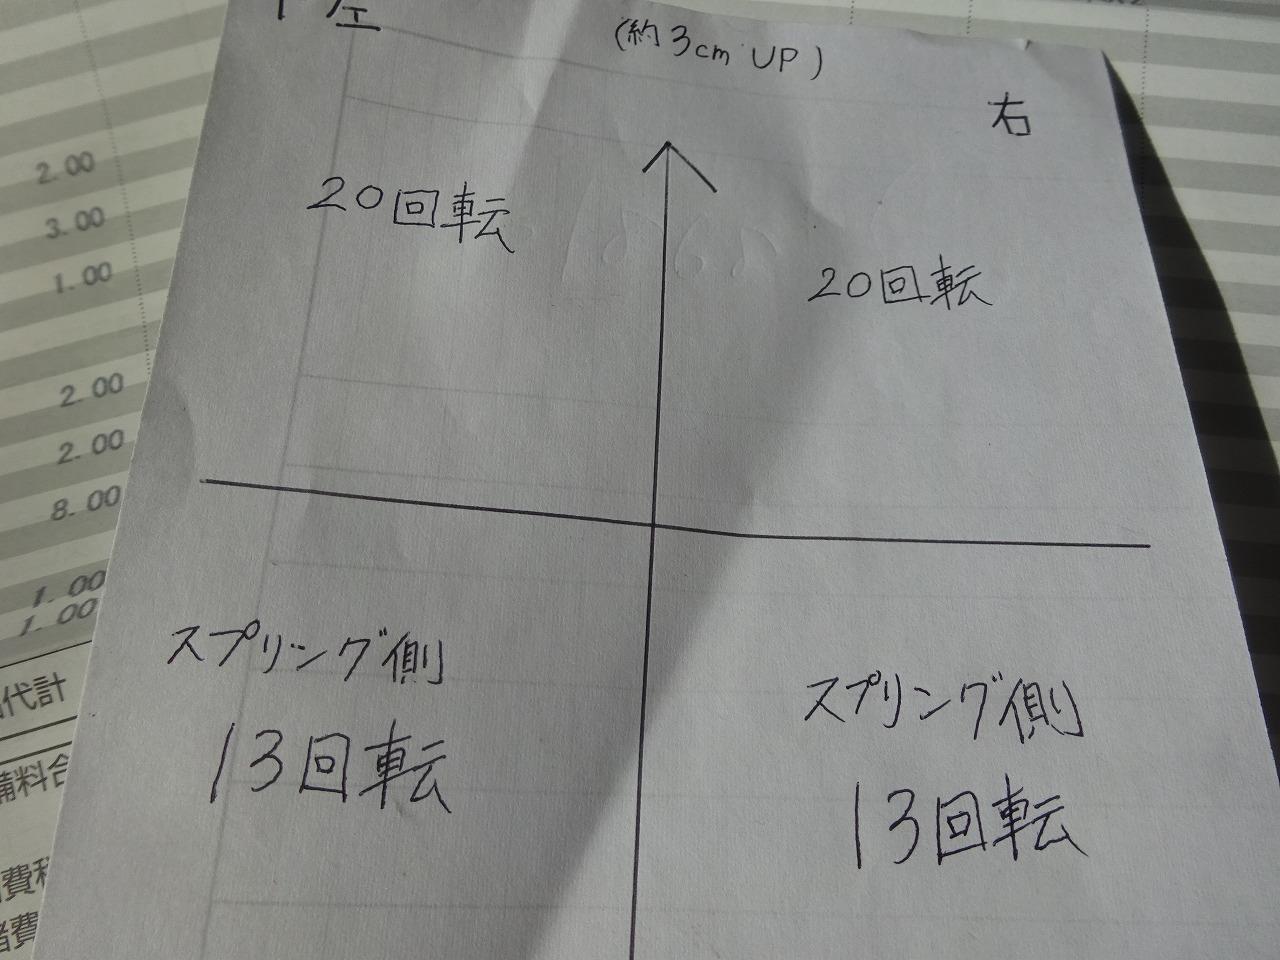 左
(約3cm UP)
右
20回転
20回転
スプリング側
13回転
スプリング側
13回転
2.00
3.00
1.00
2.00
2.00
8.00
1.00
1.00
代計
備料合
費税
諸費